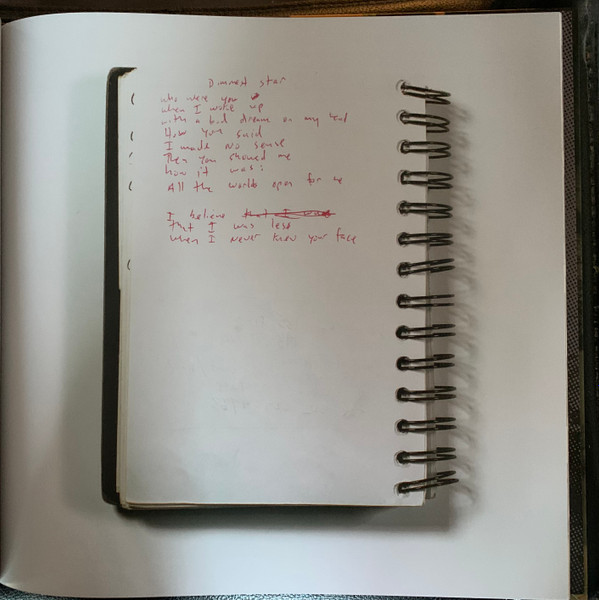 Dimmest star
who were you
when I woke up
with a bad dream on my
How you said
I made no sense
Then you showed me
how it was:
All the world open for me
I believe that I was
that I was less
when I never knew your face